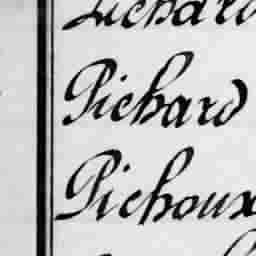 Pichard
Pichoux